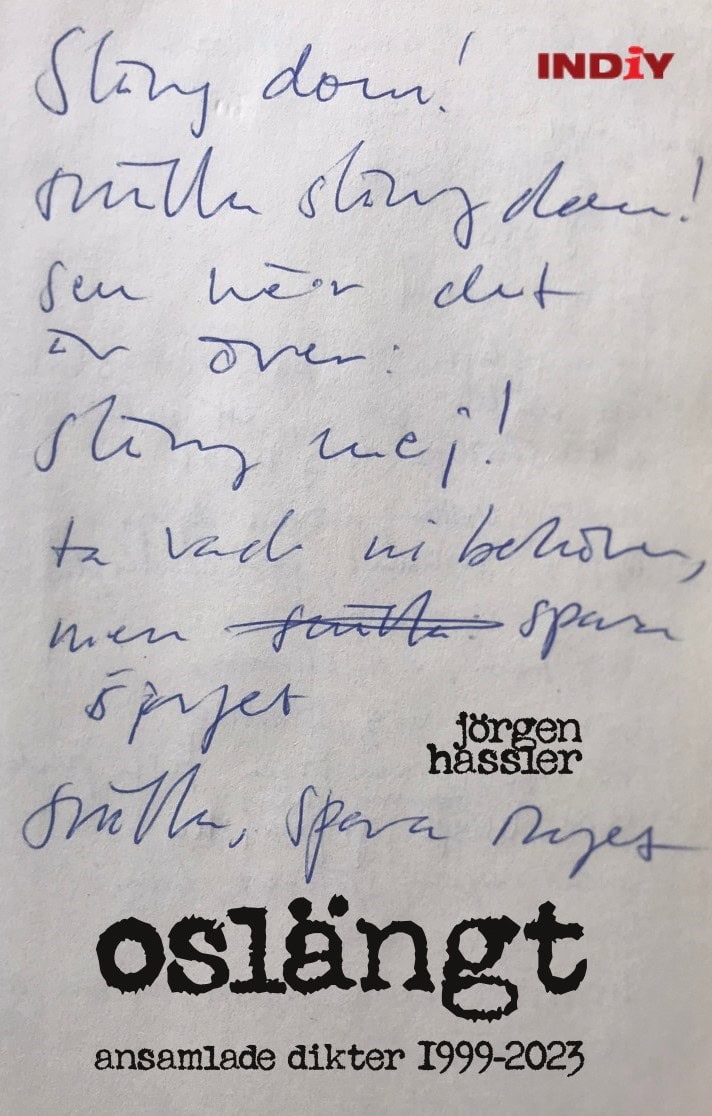 Släng dom!
INDiY
snälla släng dom!
sen när det
är över:
släng mej!
ta vad ni behöver,
men snälla: spara
jörgen
hassler
snälla, spara
oslängt
ansamlade dikter 1999-2023